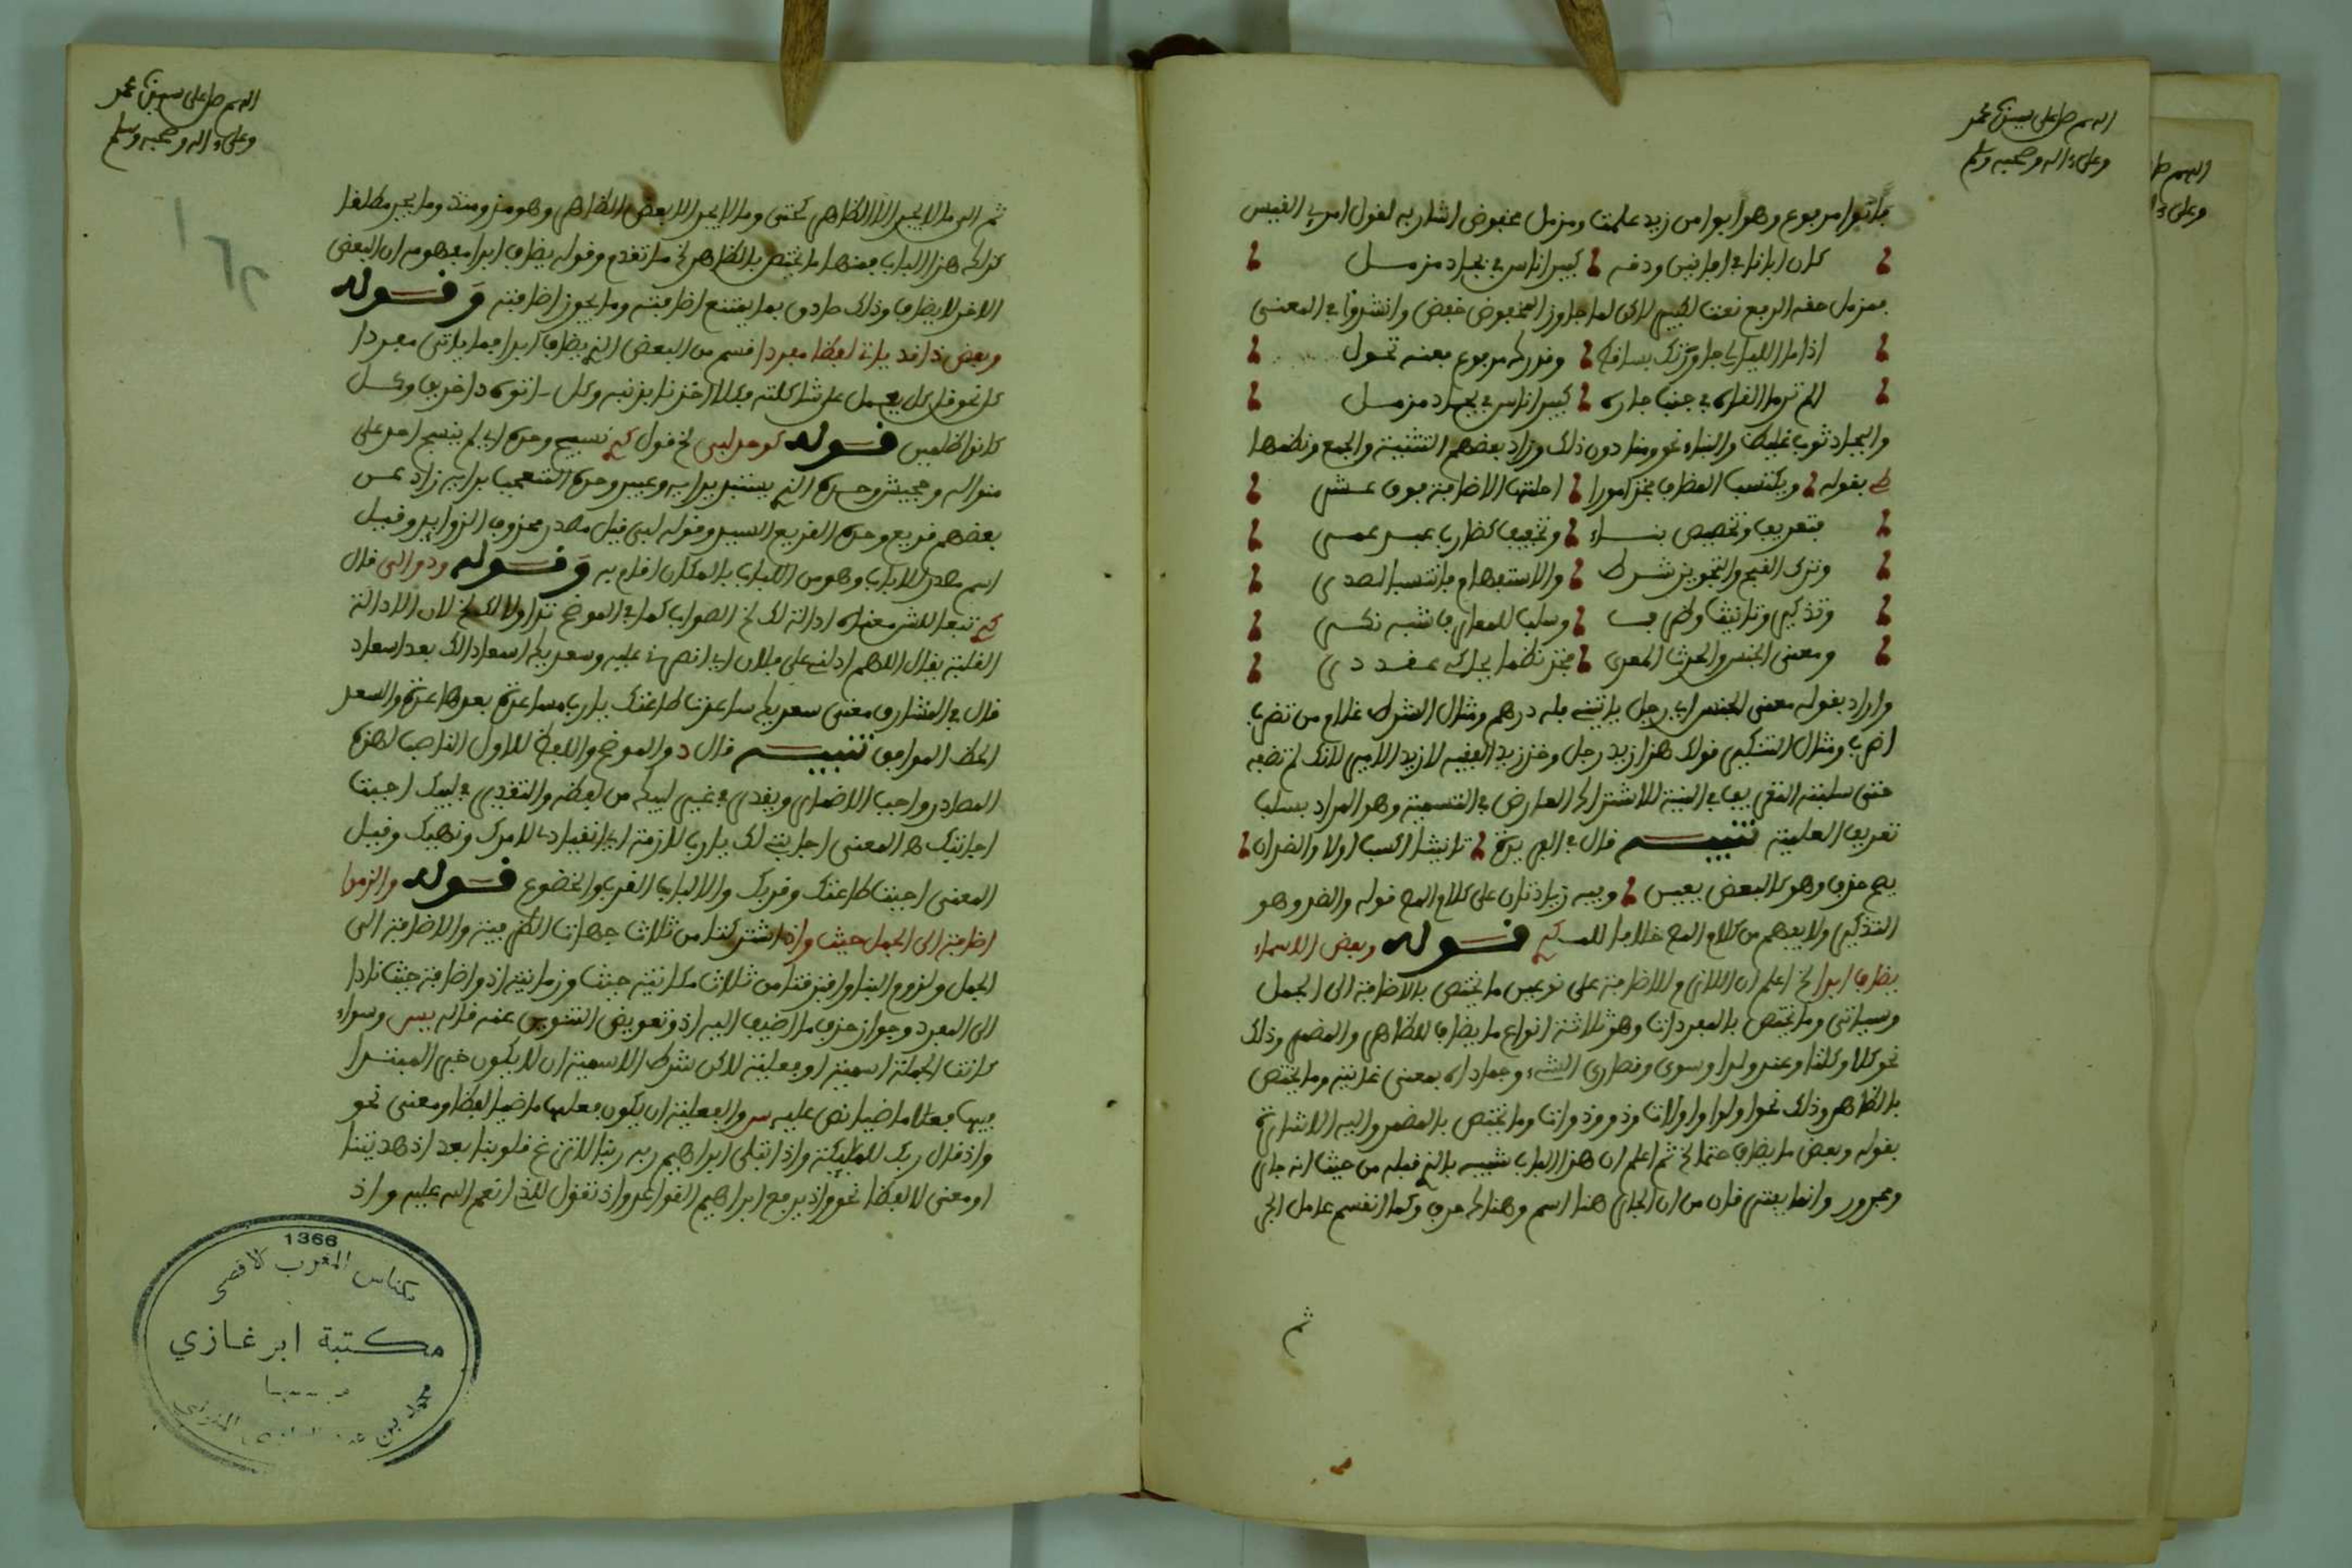 اللهم صل على سيدنا محمد
وعلى ءاله وصحبه وسلم
مرفوع وهو ابوا من زيد علمت ومزمل مخفوض اشار به لقول امرئ القيس
كان ابانا في افانين ودقه كبير اناس في بجاد مزمل
فمزمل حقه الرفع نعت لكبير لاكن لما جاور المخفوض خفض وانشدوا في المعنى
اذا ما الليالي جاورتك بساقط وقدرك مرفوع فعنه تحول
الم تر ما لاقاه في جنب جاره كبير اناس في بجاد مزمل
والبجاد ثوب غليظ والبناء نحو ومنا دون ذلك وزاد بعضهم التثنية والجمع ونظمها
بقوله ويكتسب المضاف فخذ امورا احلتها الاضافة فوق عشر
فتعريف وتخصيص بناء وتخفيف كضارب عبد عمر
وترك القبح والتجويز شرط والاستفهام فانتسب الصدر
وتذكير وتانيث وظرف وسلب للمعارف شبه نكر
ومعنى الجنس والحدث المعرى فخذ نظما يحاكي عقد در
واراد بقوله معنى الجنس اي رجل ياتيني فله درهم ومثال الشرط غلام من تضرب
اضرب ومثال التنكير قولك هذا زيد رجل وخذ زيد الفقيه لا زيد الامير لانك لم تضفه
حتى سلبته التعريف في النية للاشتراك العارض في التسمية وهو المراد بسلب
تعريف العلمية تنبيه قال في الفريدة تانيثا اكسب اولا والضد ان
يصح حذف وهو كالبعض يعن وفيه زيادتان على كلام المص قوله والضد وهو
التذكير ولا يفهم من كلام المص خلافا للمـ قوله وبعض الاسماء
يضاف ابدا الخ اعلم ان اللازم للاضافة على نوعين ما يختص بالاضافة الى الجمل
وسياتي وما يختص بالمفردات وهو ثلاثة انواع ما يضاف للظاهر والمضمر وذلك
نحو كلا وكلتا وعند ولدا وسوى وقصارى الشيء وحماداه بمعنى غايته وما يختص
بالظاهر وذلك نحو اولوا واولات وذو وذوات وما يختص بالمضمر واليه الاشارة
بقوله وبعض ما يضاف حتما الخ ثم اعلم ان هذا الباب شبيه بالذي قبله من حيث انه جار
ومجرور وانما يفترقان من ان الجار هنا اسم وهناك حرف وكما انقسم عامل الجر
ثم
اللهم صل على سيدنا محمد
وعلى ءاله وصحبه وسلم
ثم الى ما لا يجر الا الظاهر كحتى وما لا يجر الا بعض الظاهر وهو مذ ومنذ وما يجر مطلقا
كذلك هذا الباب فمنها ما يختص بالظاهر الخ ما تقدم وقوله يضاف ابدا مفهومه ان البعض
الاخر لا يضاف وذلك صادق بما يمتنع اضافته وما يجوز اضافته وقوله
وبعض ذا قد يات لفظا مفردا قسم من البعض الذي يضاف ابدا فيما ياتي مفردا
كل نحو قل كل يعمل على شاكلته فكلا اخذنا بذنبه وكل اتوه داخرين وكل
كانوا ظلمين قوله كوحد لبى الخ قول نسيج وحده اي لم ينسج احد على
منواله وجحيش وحده الذي يستبد برايه وعيير وحده المتعجب برايه زاد
بعضهم قريع وحده القريع السيد وقوله لبى قيل مصدر محذوف الزوائد وقيل
اسم مصدر لالباب وهو من الب بالمكان اقام به وقوله ودوالى قال
تبعا للشـ معناه ادالة لك الخ الصواب كما في الموضح تداولا لك الخ لان الادالة
الغلبة يقال اللهم ادلني على فلان اي انصرني عليه وسعديك اسعادا لك بعد اسعاد
قال في المشارق معنى سعديك ساعدت طاعتك يا رب مساعدة بعد مساعدة والسعد
الحظ الموافق تنبيه قال د والموضح واللفظ للاول الناصب لهذه
المصادر واجب الاضمار ويقدر في غير لبيك من لفظه والتقدير في لبيك اجبت
اجابتك ه المعنى اجابتي لك يا رب لازمة اي انقيادي لامرك ونهيك وقيل
المعنى اجبت طاعتك وقربك والالباب القرب والخضوع قوله والزموا
اضافة الى الجمل حيث واذ اشتركتا من ثلاث جهات الظرفية والاضافة الى
الجمل ولزوم البنا وافترقتا من ثلاث مكانية حيث وزمانية اذ واضافة حيث نادا
الى المفرد وجواز حذف ما اضيف اليه اذ وتعويض التنوين عنه قاله يس وسواء
كانت الجملة اسمية او فعلية لاكن شرط الاسمية ان لا يكون خبر المبتدا
فيها فعلا ماضيا نص عليه س والفعلية ان يكون فعلها ماضيا لفظا ومعنى نحو
واذ قال ربك للملئكة واذ ابتلى ابراهيم ربه ربنا لا تزغ قلوبنا بعد اذ هديتنا
او معنى لا لفظا نحو واذ يرفع ابراهيم القواعد واذ تقول للذي انعم الله عليه واذ
1366
مكناس المغرب الاقصى
مكتبة ابن غازي